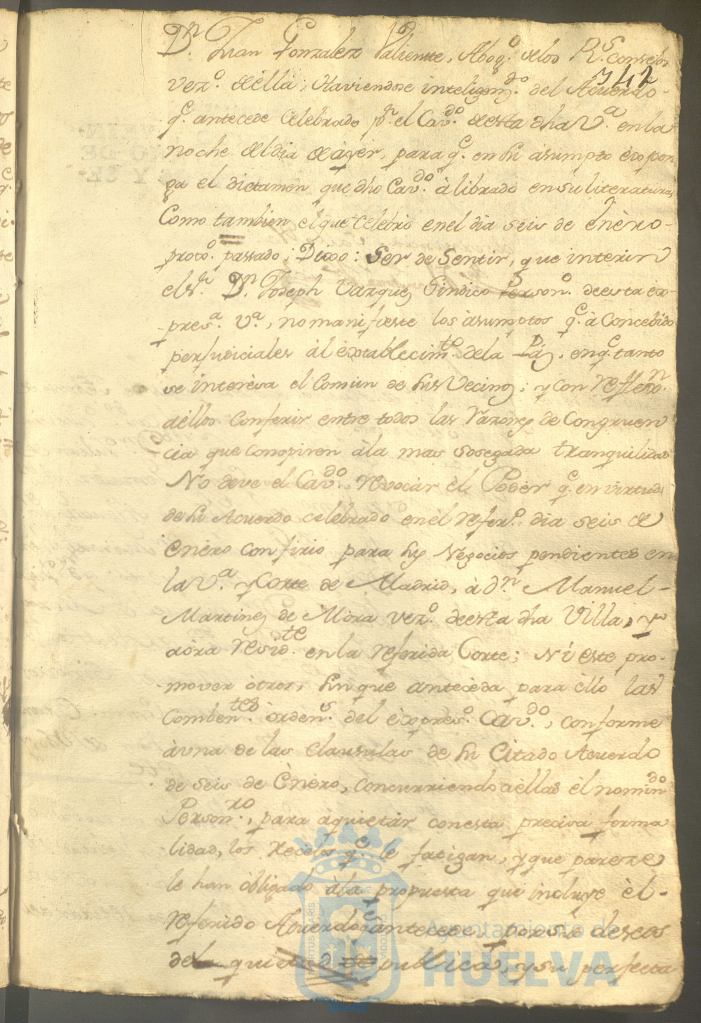 Dn. Juan Gonzalez Valiente, Abogo. de los Rs. consejos
342
vezo. de ella; Haviendose inteligendo. del Acuerdo
qe. antecede celebrado pr. el Cavdo. de esta dha Va. en la
noche del dia de ayer, para qe. en su asumpto expon-
ga el dictamen que dho Cavdo. à librado en su literatura,
Como tambien el que celebrò en el dia seis de Enèro
proxo. passado; Dixo: Ser de Sentir, que interin
el Sr. Dn. Joseph Vazquez Sindico Persono. de esta ex-
presa. Va., no manifieste los asumptos qe. à Concebido
perjudiciales àl èxtablecimto. de la en qe. tanto
se interèsa el Comun de sus Vecinos; y con reflexn.
de ellos Conferir entre todos las razones de Congruen
cia que conspiren à la mas sosegada tranquilidad
No deve el Cavdo. revocàr èl Podèr qe. en virtud
de su Acuerdo celebrado en èl refero. dia seis de
Enèro confirio para sus Negocios pendientes en
la Va. y Corte de Madrid, à dn. Manuel
Martinez de Mòra vezo. de esta dha Villa, y
aòra residte. en la referida Corte; Ni èste pro-
mover òtros, sin que anteceda para èllo las
Combentes. òrdens. del èxpreso. Cavdo., conforme
à una de las Clausulas de su Citado Acuerdo
de seis de Enèro, concurriendo a ellas èl nomindo.
Personro., para àquietàr con esta precisa forma
lidad, los recèlos qe. le fatigan, y que parece
le han òbligado à la propuesta que incluye èl
referido Acuerdo antecedte. por sus deseos
del quietud publica, y su perfecta
Ayuntamiento de
HUELVA